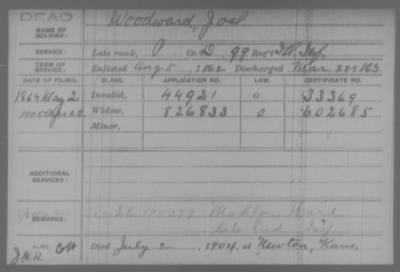 DEAD
NAME OF SOLDIER: Woodward, Joel
SERVICE: Late rank, P Co. D, 99 Reg't Ill. Inf.
TERM OF SERVICE: Enlisted Aug 5, 1862 Discharged Mar 22 1863
DATE OF FILING. CLASS. APPLICATION NO. LAW. CERTIFICATE NO.
1864 May 2 Invalid, 44921 o 33369
1905 Apr 22 Widow, 826833 o 602685
Minor,
ADDITIONAL SERVICES:
REMARKS: Mahlon
Inf.
Died July 2, 1904, at Newton, Kans.